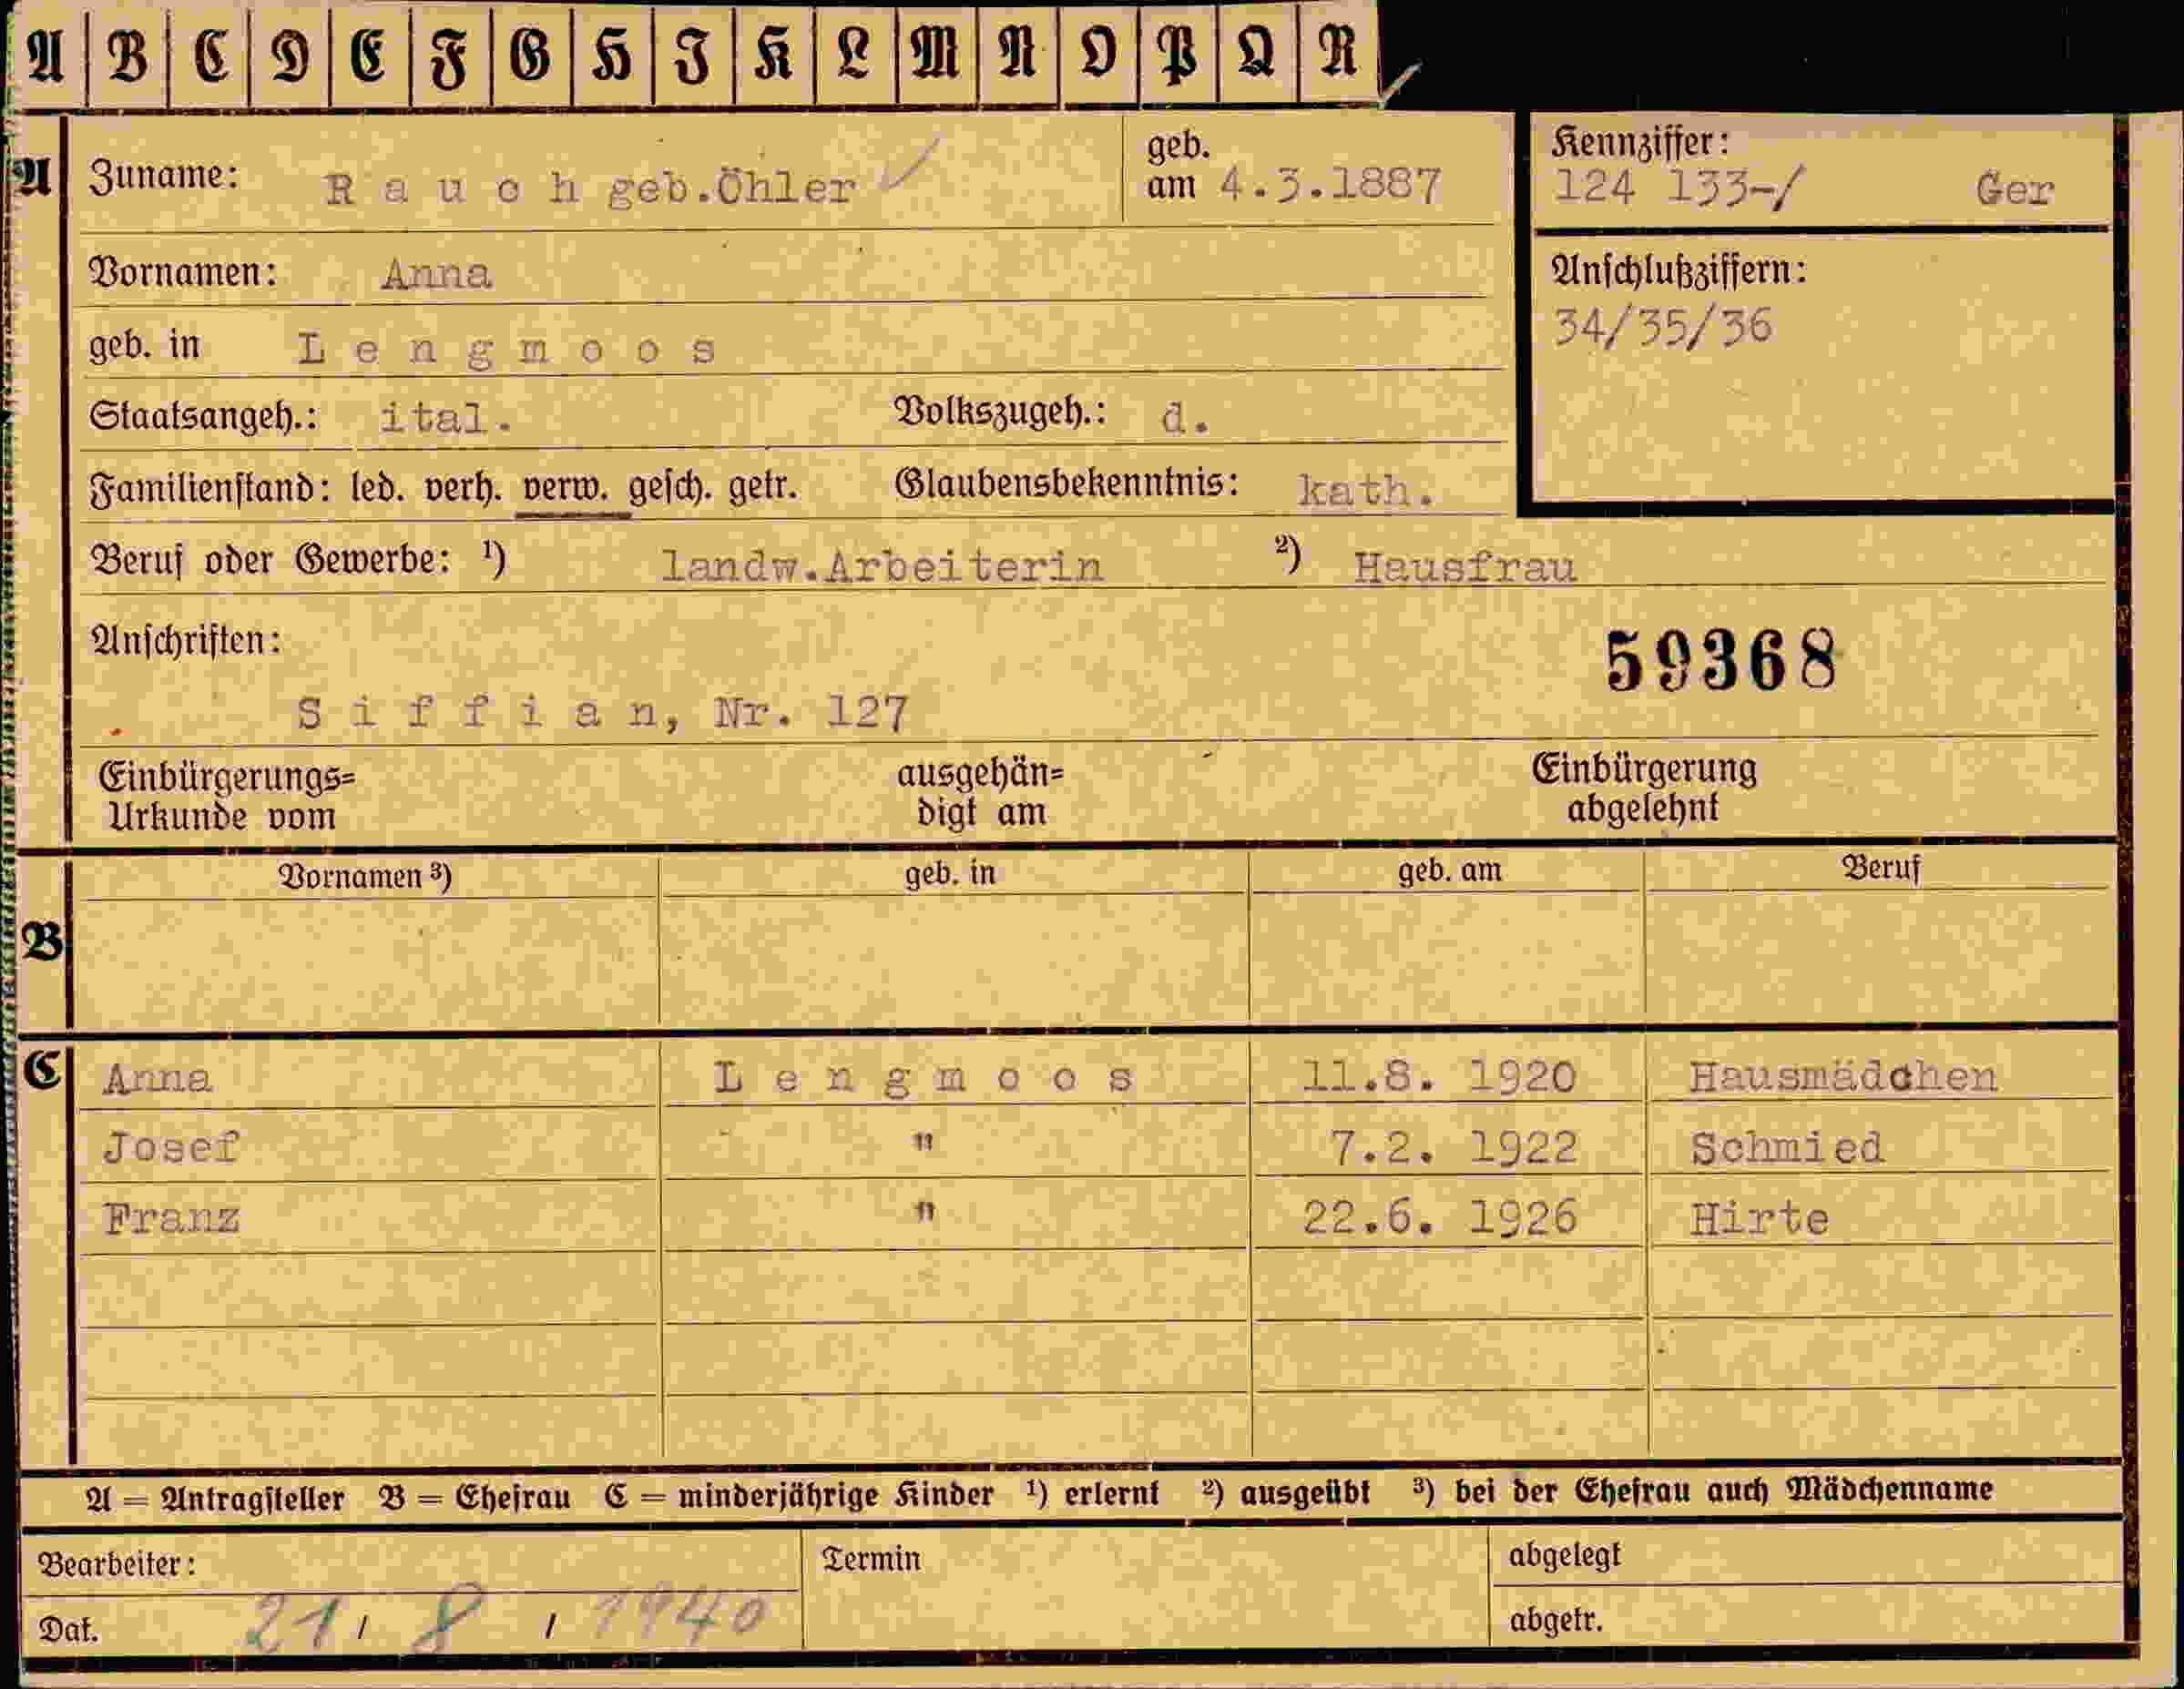 A B C D E F G H J K L M N O P Q R
A Zuname: Rauch geb.Öhler geb. am 4.3.1887
Kennziffer: 124 133-/ Ger
Vornamen: Anna
Anschlußziffern:
34/35/36
geb. in Lengmoos
Staatsangeh.: ital. Volkszugeh.: d.
Familienstand: led. verh. verw. gesch. getr. Glaubensbekenntnis: kath.
Beruf oder Gewerbe: ¹) landw.Arbeiterin ²) Hausfrau
Anschriften:
59368
Siffian, Nr. 127
Einbürgerungs= ausgehän= Einbürgerung
Urkunde vom digt am abgelehnt
Vornamen ³) geb. in geb. am Beruf
B
C Anna Lengmoos 11.8. 1920 Hausmädchen
Josef " 7.2. 1922 Schmied
Franz " 22.6. 1926 Hirte
A = Antragsteller B = Ehefrau C = minderjährige Kinder ¹) erlernt ²) ausgeübt ³) bei der Ehefrau auch Mädchenname
Bearbeiter: Termin abgelegt
Dat. 21 / 8 / 1940 abgetr.